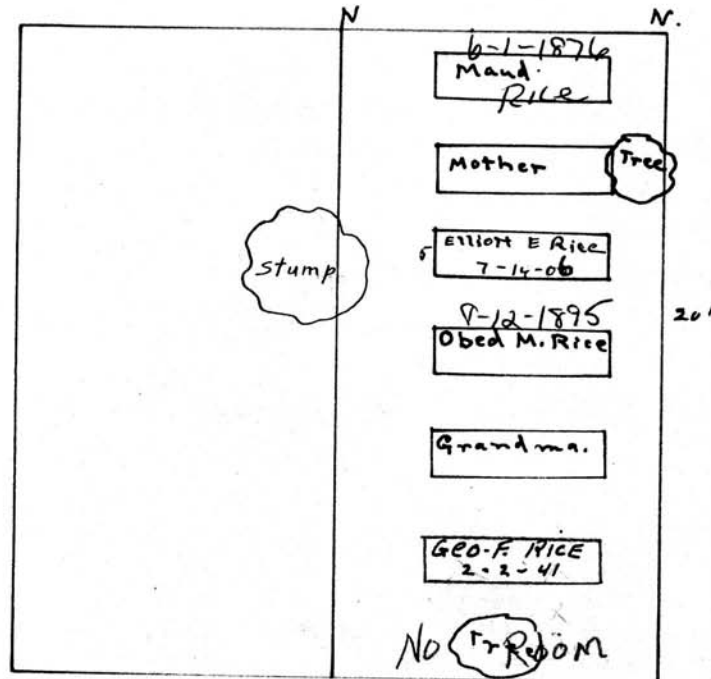 N N.
6-1-1876
Maud.
Rice
Mother
Tree
Stump
5
Elliott E Rice
7-14-06
8-12-1895
Obed M. Rice
20'
Grandma.
Geo. F. RICE
2-2-41
No RooM
Tree